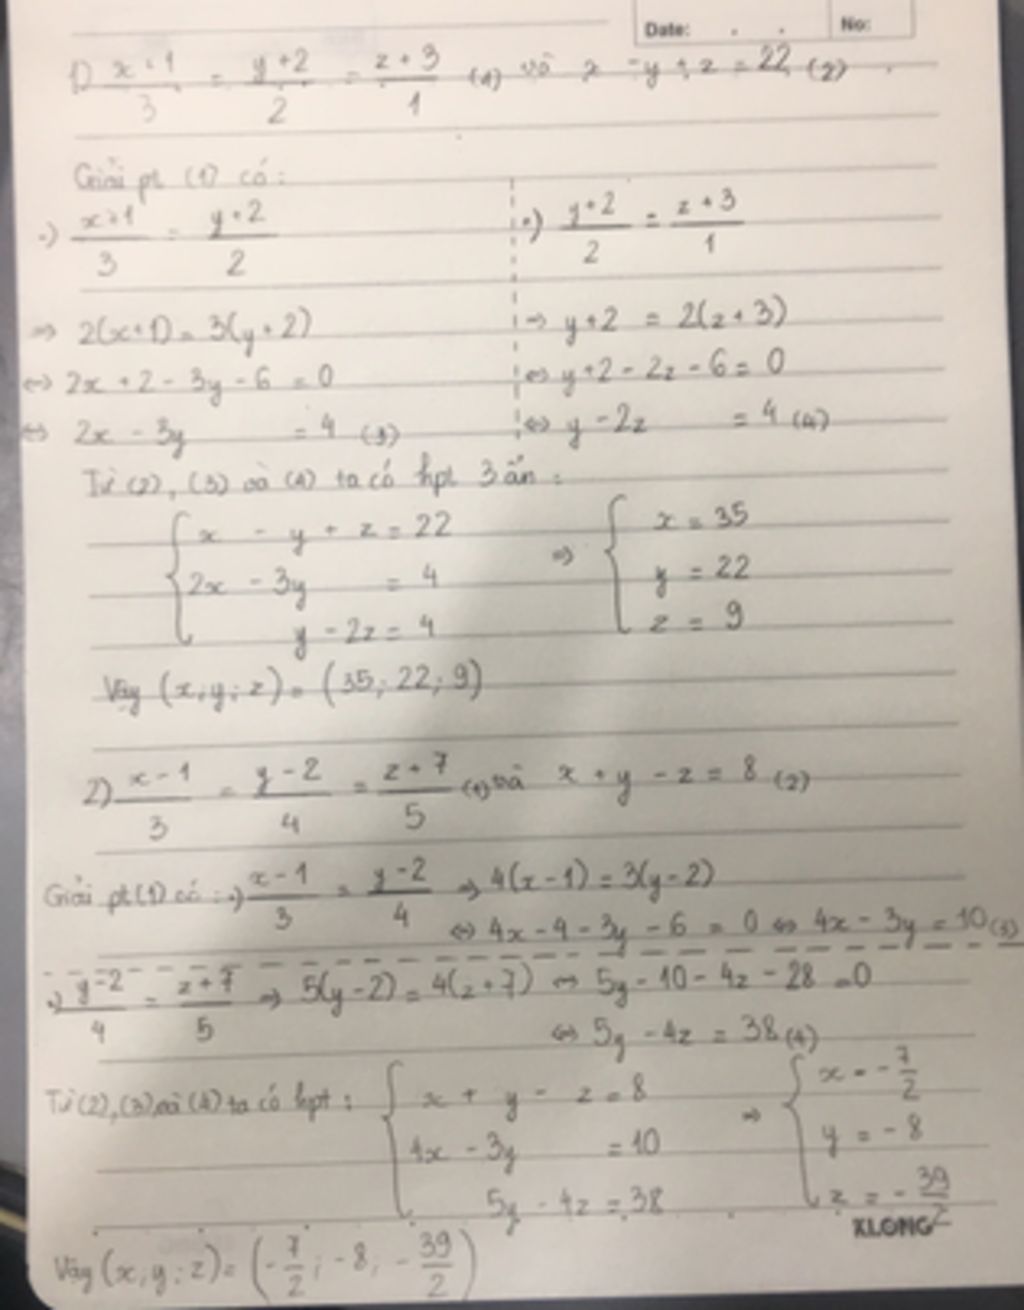 Date: . . No:
1) x+1/3 = y+2/2 = z+3/1 (1) và x - y + z = 22 (2)
Giải pt (1) có:
•) x+1/3 = y+2/2 •) y+2/2 = z+3/1
⇒ 2(x+1) = 3(y+2) ⇒ y+2 = 2(z+3)
⇔ 2x + 2 - 3y - 6 = 0 ⇔ y+2 - 2z - 6 = 0
⇔ 2x - 3y = 4 (3) ⇔ y - 2z = 4 (4)
Từ (2), (3) và (4) ta có hpt 3 ẩn :
{ x - y + z = 22 ⇒ { x = 35
2x - 3y = 4 y = 22
y - 2z = 4 z = 9
Vậy (x; y; z) = (35; 22; 9)
2) x-1/3 = y-2/4 = z+7/5 (1) và x + y - z = 8 (2)
Giải pt (1) có : •) x-1/3 = y-2/4 ⇒ 4(x-1) = 3(y-2)
⇔ 4x - 4 - 3y - 6 = 0 ⇔ 4x - 3y = 10 (3)
•) y-2/4 = z+7/5 ⇒ 5(y-2) = 4(z+7) ⇔ 5y - 10 - 4z - 28 = 0
⇔ 5y - 4z = 38 (4)
Từ (2), (3) và (4) ta có hpt : { x + y - z = 8 ⇒ { x = -7/2
4x - 3y = 10 y = -8
5y - 4z = 38 z = -39/2
KLONG
Vậy (x; y; z) = (-7/2; -8; -39/2)